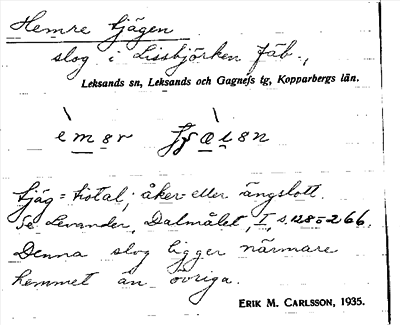 Hemre tjägen
slog i Lissbjörken fäb.,
Leksands sn, Leksands och Gagnefs tg, Kopparbergs län.
tjäg = tiotal; åker- eller ängslott.
Se Levander, Dalmålet, I, s. 128 o 266.
Denna slog ligger närmare
hemmet än övriga.
ERIK M. CARLSSON, 1935.